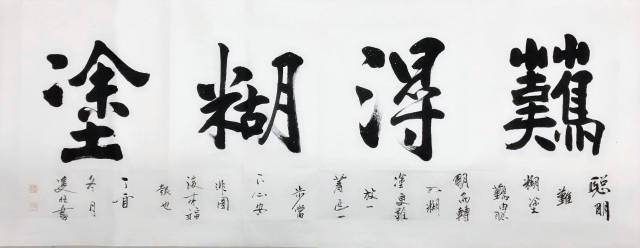 難得糊塗
聰明
難
糊塗
難由聰
明而轉
入糊
塗更難
放一
著退一
步當
下心安
非圖
後來福
報也
丁酉
冬月
書